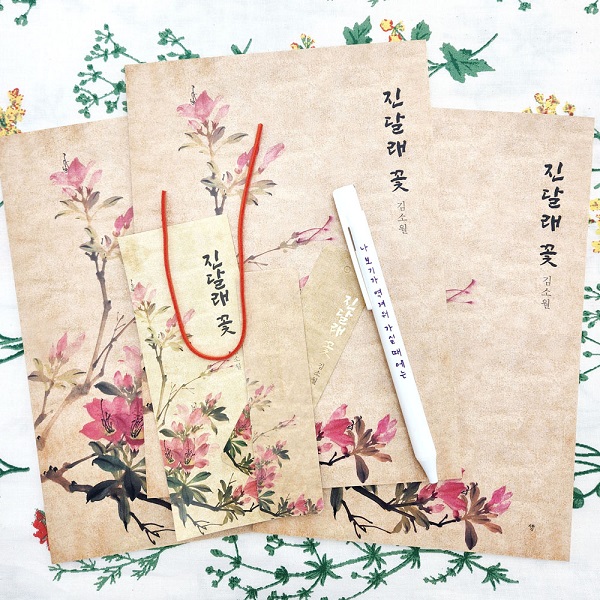 진달래꽃
김소월
진달래꽃
김소월
진달래꽃
소월
진달래꽃
김소월
나 보기가 역겨워 가실 때에는